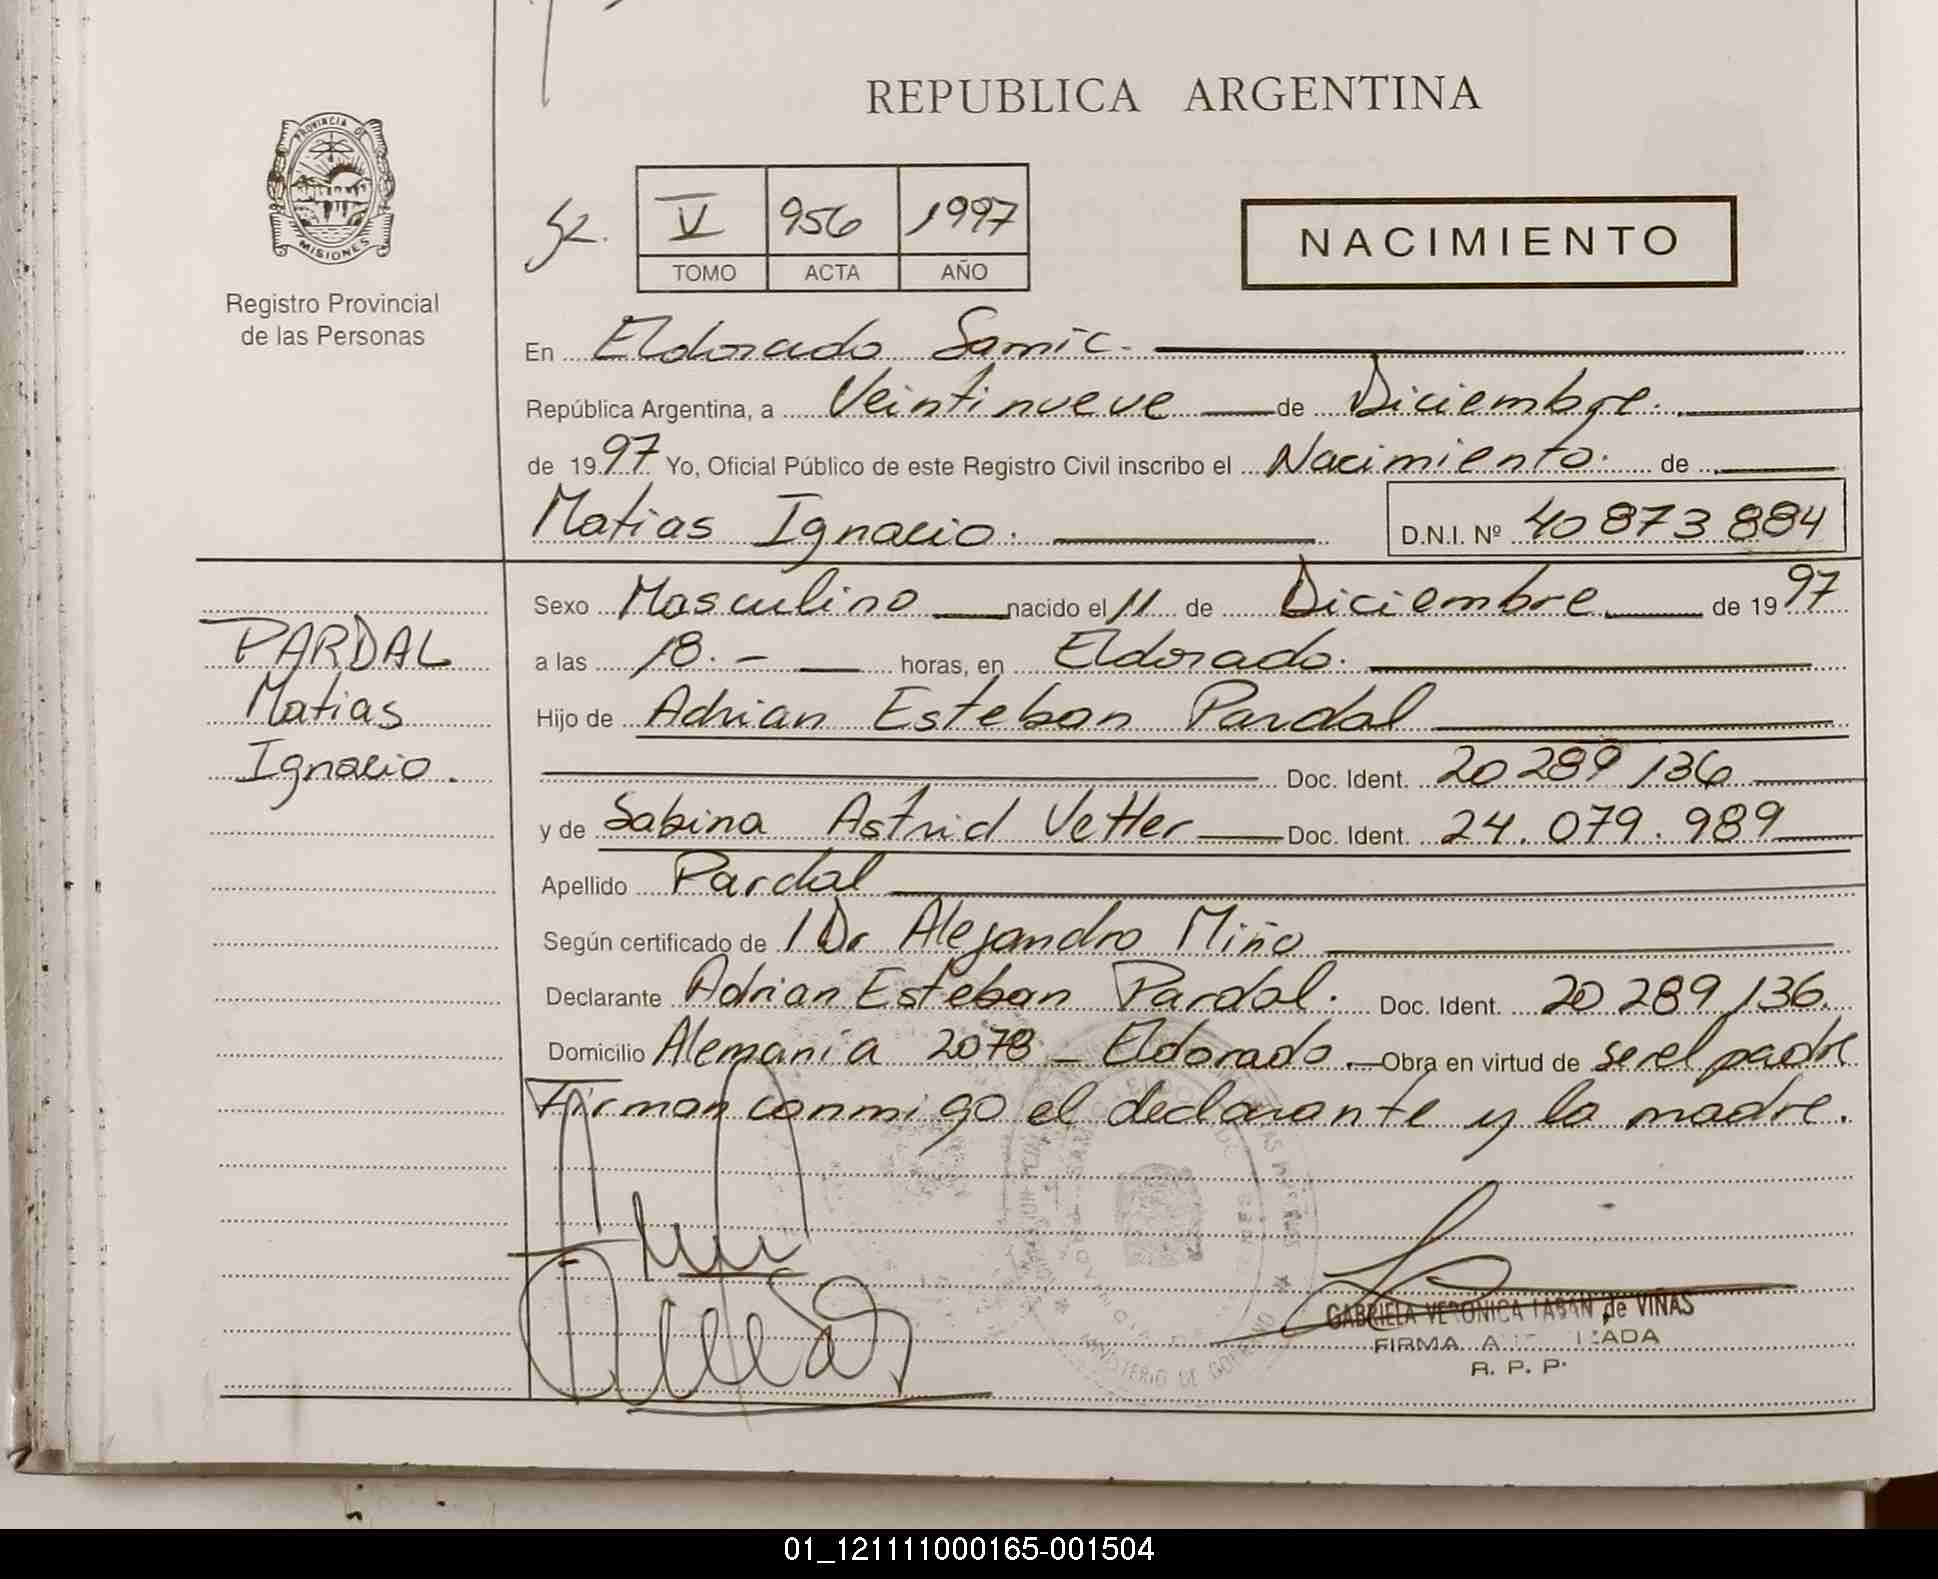 REPUBLICA ARGENTINA
PROVINCIA DE
MISIONES
Registro Provincial
de las Personas
V 956 1997
TOMO ACTA AÑO
NACIMIENTO
En Eldorado Samic.
República Argentina, a Veintinueve de Diciembre.
de 1997 Yo, Oficial Público de este Registro Civil inscribo el Nacimiento. de
Matias Ignacio. D.N.I. Nº 40 873 884
Sexo Masculino nacido el 11 de Diciembre de 1997
PARDAL
a las 18.- horas, en Eldorado.
Matias
Hijo de Adrian Esteban Pardal
Ignacio.
Doc. Ident. 20 289 136
y de Sabina Astrid Vetter Doc. Ident. 24.079.989
Apellido Pardal
Según certificado de 1 Dr Alejandro Miño
Declarante Adrian Esteban Pardal. Doc. Ident. 20 289 136.
Domicilio Alemania 2078 - Eldorado.- Obra en virtud de ser el padre
Firman conmigo el declarante y la madre.
MINISTERIO DE GOBIERNO
GABRIELA VERONICA de VIÑAS
FIRMA
R. P. P.
01_121111000165-001504